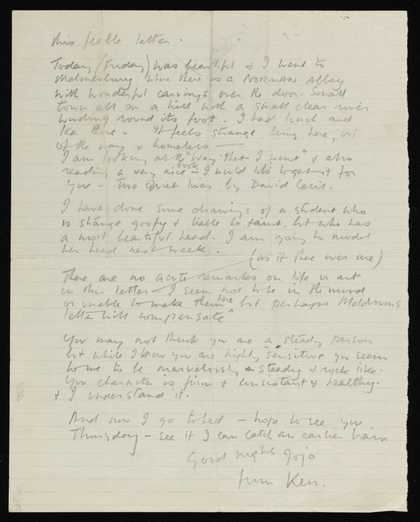 this feeble letter.
Today (Sunday) was beautiful & I went to
Malmesbury where there is a NORMAN Abbey
with wonderful carvings over the door. Small
town all on a hill with a small clear river
winding round its foot. I had lunch and
tea there. It feels strange being here, out
of the way & homeless —
I am looking at the "way that I went" & also
reading a very nice book I would like to get it for
you — Two quiet by David Cecil.
I have done some drawings of a student who
is strange goofy & liable to faint, but who has
a most beautiful head. I am going to model
her head next week.
(as if there ever are)
There are no acute remarks on life or art
in this letter I seem not to be in the mood
or unable to make them here but perhaps Meldrums
letter will compensate
You may not think you are a steady person
but while I know you are highly sensitive you seem
to me to be marvelously steady & rock like.
Your character is firm & consistant & healthy.
& I understand it.
And now I go to bed — hope to see you
Thursday — see if I can catch an earlier train
Good night Jojo
from Ken.